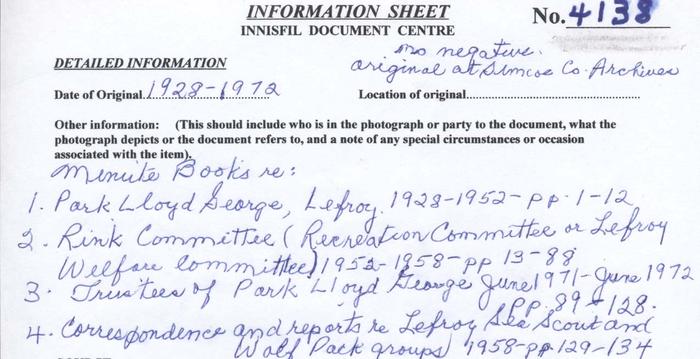 INFORMATION SHEET
No. 4138
INNISFIL DOCUMENT CENTRE
no negative.
original at Simcoe Co. Archives
DETAILED INFORMATION
Date of Original 1928-1972
Location of original
Other information: (This should include who is in the photograph or party to the document, what the
photograph depicts or the document refers to, and a note of any special circumstances or occasion
associated with the item).
Minute Books re:
1. Park Lloyd George, Lefroy. 1928-1952-pp. 1-12
2. Rink Committee (Recreation Committee or Lefroy
Welfare Committee) 1952-1958-pp 13-88
3. Trustees of Park Lloyd George June 1971-June 1972
pp. 89-128.
4. Correspondence and reports re Lefroy Sea Scout and
Wolf Pack groups) 1958-pp-129-134